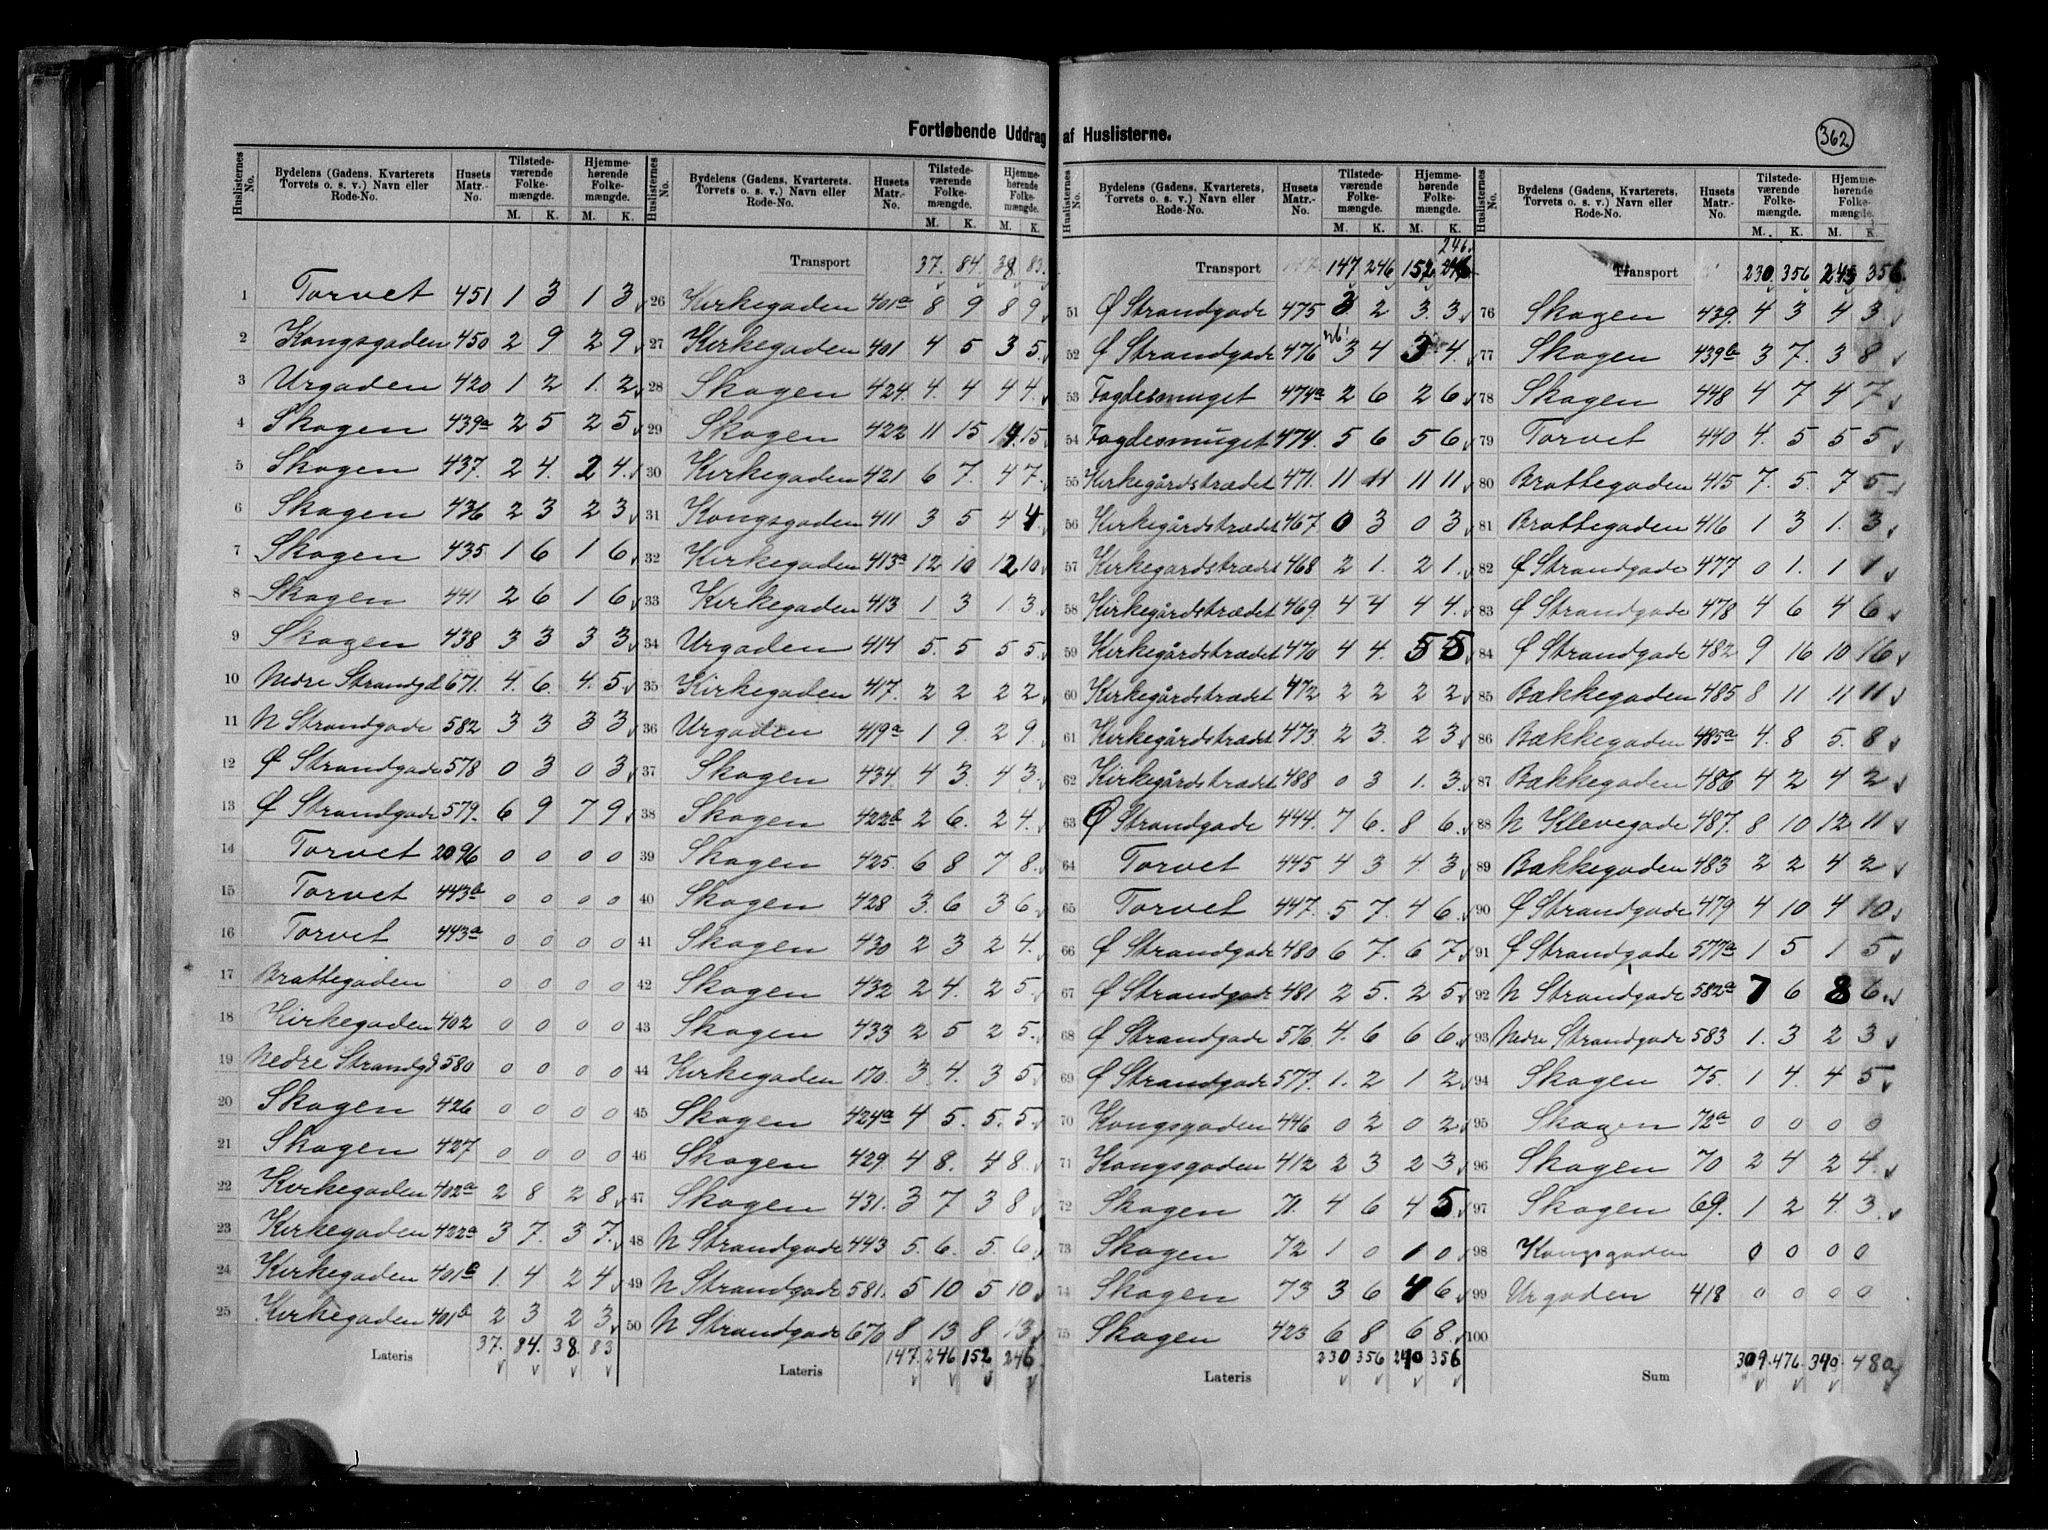 Fortløbende Uddrag af Huslisterne.
362
Huslisternes No. Bydelens (Gadens, Kvarterets Torvets o. s. v.) Navn eller Rode-No. Husets Matr.-No. Tilstedeværende Folkemængde. M. K. Hjemmehørende Folkemængde. M. K.
1 Torvet 451 1 3 1 3
2 Kongsgaden 450 2 9 2 9
3 Urgaden 420 1 2 1. 2
4 Skagen 439a 2 5 2 5
5 Skagen 437. 2 4. 2 4.
6 Skagen 436 2 3 2 3
7 Skagen 435. 1 6 1 6
8 Skagen 441 2 6 1 6
9 Skagen 438 3 3 3 3
10 Nedre Strandgd 671. 4. 6. 4. 5
11 N Strandgade 582 3 3 3 3
12 Ø Strandgade 578 0 3 0 3
13 Ø Strandgade 579. 6 9 7 9
14 Torvet 2096 0 0 0 0
15 Torvet 443b 0 0 0 0
16 Torvet 443a 0 0 0 0
17 Brattegaden 0 0 0 0
18 Kirkegaden 402 0 0 0 0
19 Nedre Strandgd 580 0 0 0 0
20 Skagen 426 0 0 0 0
21 Skagen 427 0 0 0 0
22 Kirkegaden 402a 2 8 2 8
23 Kirkegaden 422a 3 7. 3 7.
24 Kirkegaden 401c 1. 4 2 4
25 Kirkegaden 401b 2 3 2 3
Lateris 37. 84. 38. 83
Huslisternes No. Bydelens (Gadens, Kvarterets. Torvets o. s. v.) Navn eller Rode-No. Husets Matr.-No. Tilstedeværende Folkemængde. M. K. Hjemmehørende Folkemængde. M. K.
Transport 37. 84. 38. 83.
26 Kirkegaden 401a 8 9 8 9
27 Kirkegaden 401 4 5 3 5.
28 Skagen 424. 4. 4 4 4.
29 Skagen 422 11 15 14. 15
30 Kirkegaden 421 6 7. 4 7.
31 Kongsgaden 411 3 5 4 4.
32 Kirkegaden 413a 12 10 12 10
33 Kirkegaden 413 1 3 1 3.
34 Urgaden 414 5. 5 5 5.
35 Kirkegaden 417. 2 2 2 2
36 Urgaden 419a 1 9. 2 9
37 Skagen 434. 4 3. 4 3.
38 Skagen 422b 2 6. 2 4.
39 Skagen 425. 6 8 7 8.
40 Skagen 428 3. 6 3 6
41 Skagen 430 2 3 2 4.
42 Skagen 432 2 4. 2 5
43 Skagen 433 2 5 2 5.
44 Kirkegaden 170. 3. 4. 3 5
45 Skagen 424a 4 5. 5. 5
46 Skagen 429. 4 8. 4 8.
47 Skagen 431. 3 7 3 8
48 N Strandgade 443 5. 6. 5. 6
49 N Strandgade 581. 5 10 5 10
50 N Strandgade 670 8 13 8 13
Lateris 147. 246 152 246
Huslisternes No. Bydelens (Gadens, Kvarterets, Torvets o. s. v.) Navn eller Rode-No. Husets Matr.-No. Tilstedeværende Folkemængde. M. K. Hjemmehørende Folkemængde. M. K.
246.
Transport 147 246 152
51 Ø Strandgade 475 3 2 3. 3
52 Ø Strandgade 476 3 4 3 4.
53 Fogdesmuget 474a 2 6 2 6
54 Fogdesmuget 474. 5 6 5 6
55 Kirkegårdstrædet 471. 11 11 11 11
56 Kirkegårdstrædet 467. 0 3 0 3
57 Kirkegardstrædet 468 2 1. 2 1.
58 Kirkegårdstrædet 469. 4 4 4 4.
59 Kirkegårdstrædet 470 4 4. 5 5
60 Kirkegårdstrædet 472 2 2 2 2
61 Kirkegårdstrædet 473. 2 3. 2 3
62 Kirkegårdstrædet 488 0 3 1. 3
63 Ø Strandgade 444. 7 6. 8 6.
64 Torvet 445 4 3 4. 3
65 Torvet 447. 5 7. 4 6.
66 Ø Strandgade 480 6 7. 6 7
67 Ø Strandgade 481 2 5. 2 5
68 Ø Strandgade 576 4. 6 6 6
69 Ø Strandgade 577. 1. 2 1 2
70 Kongsgaden 446 0 2 0 2
71 Kongsgaden 412 2 3 2 3
72 Skagen 71. 4 6 4 5.
73 Skagen 72 1 0 1 0
74 Skagen 73 3 6 4 6
75 Skagen 423 6 8 6 8.
Lateris 230 356 240 356
Huslisternes No. Bydelens (Gadens, Kvarterets, Torvets o. s. v.) Navn eller Rode-No. Husets Matr.-No. Tilstedeværende Folkemængde. M. K. Hjemmehørende Folkemængde. M. K.
Transport 230 356 356
76 Skagen 429. 4 3 4 3
77 Skagen 439b 3 7. 3 8
78 Skagen 448 4 7 4 7
79 Torvet 440 4. 5 5 5
80 Brattegaden 415 7. 5. 7 5
81 Brattegaden 416 1 3 1. 3
82 Ø Strandgade 477 0 1. 1 1
83 Ø Strandgade 478 4 6 4 6
84 Ø Strandgade 482 9 16 10 16
85 Bakkegaden 485 8 11 11 11
86 Bakkegaden 485a 4. 8 5. 8
87 Bakkegaden 486 4 2 4 2
88 N Klevegade 487. 8 10 12 11
89 Bakkegaden 483 2 2 4 2
90 Ø Strandgade 479 4 10 4 10
91 Ø Strandgade 577a 1 5 1 5
92 N Strandgade 582a 7 6 8 6
93 Nedre Strandgade 583 1. 3 2 3
94 Skagen 75. 1 4. 4 5
95 Skagen 72a 0 0 0 0
96 Skagen 70 2 4 2 4.
97 Skagen 69. 1 2 4. 3
98 Kongsgaden 0 0 0 0
99 Urgaden 418 0 0 0 0
100
Sum 309. 476. 340. 480